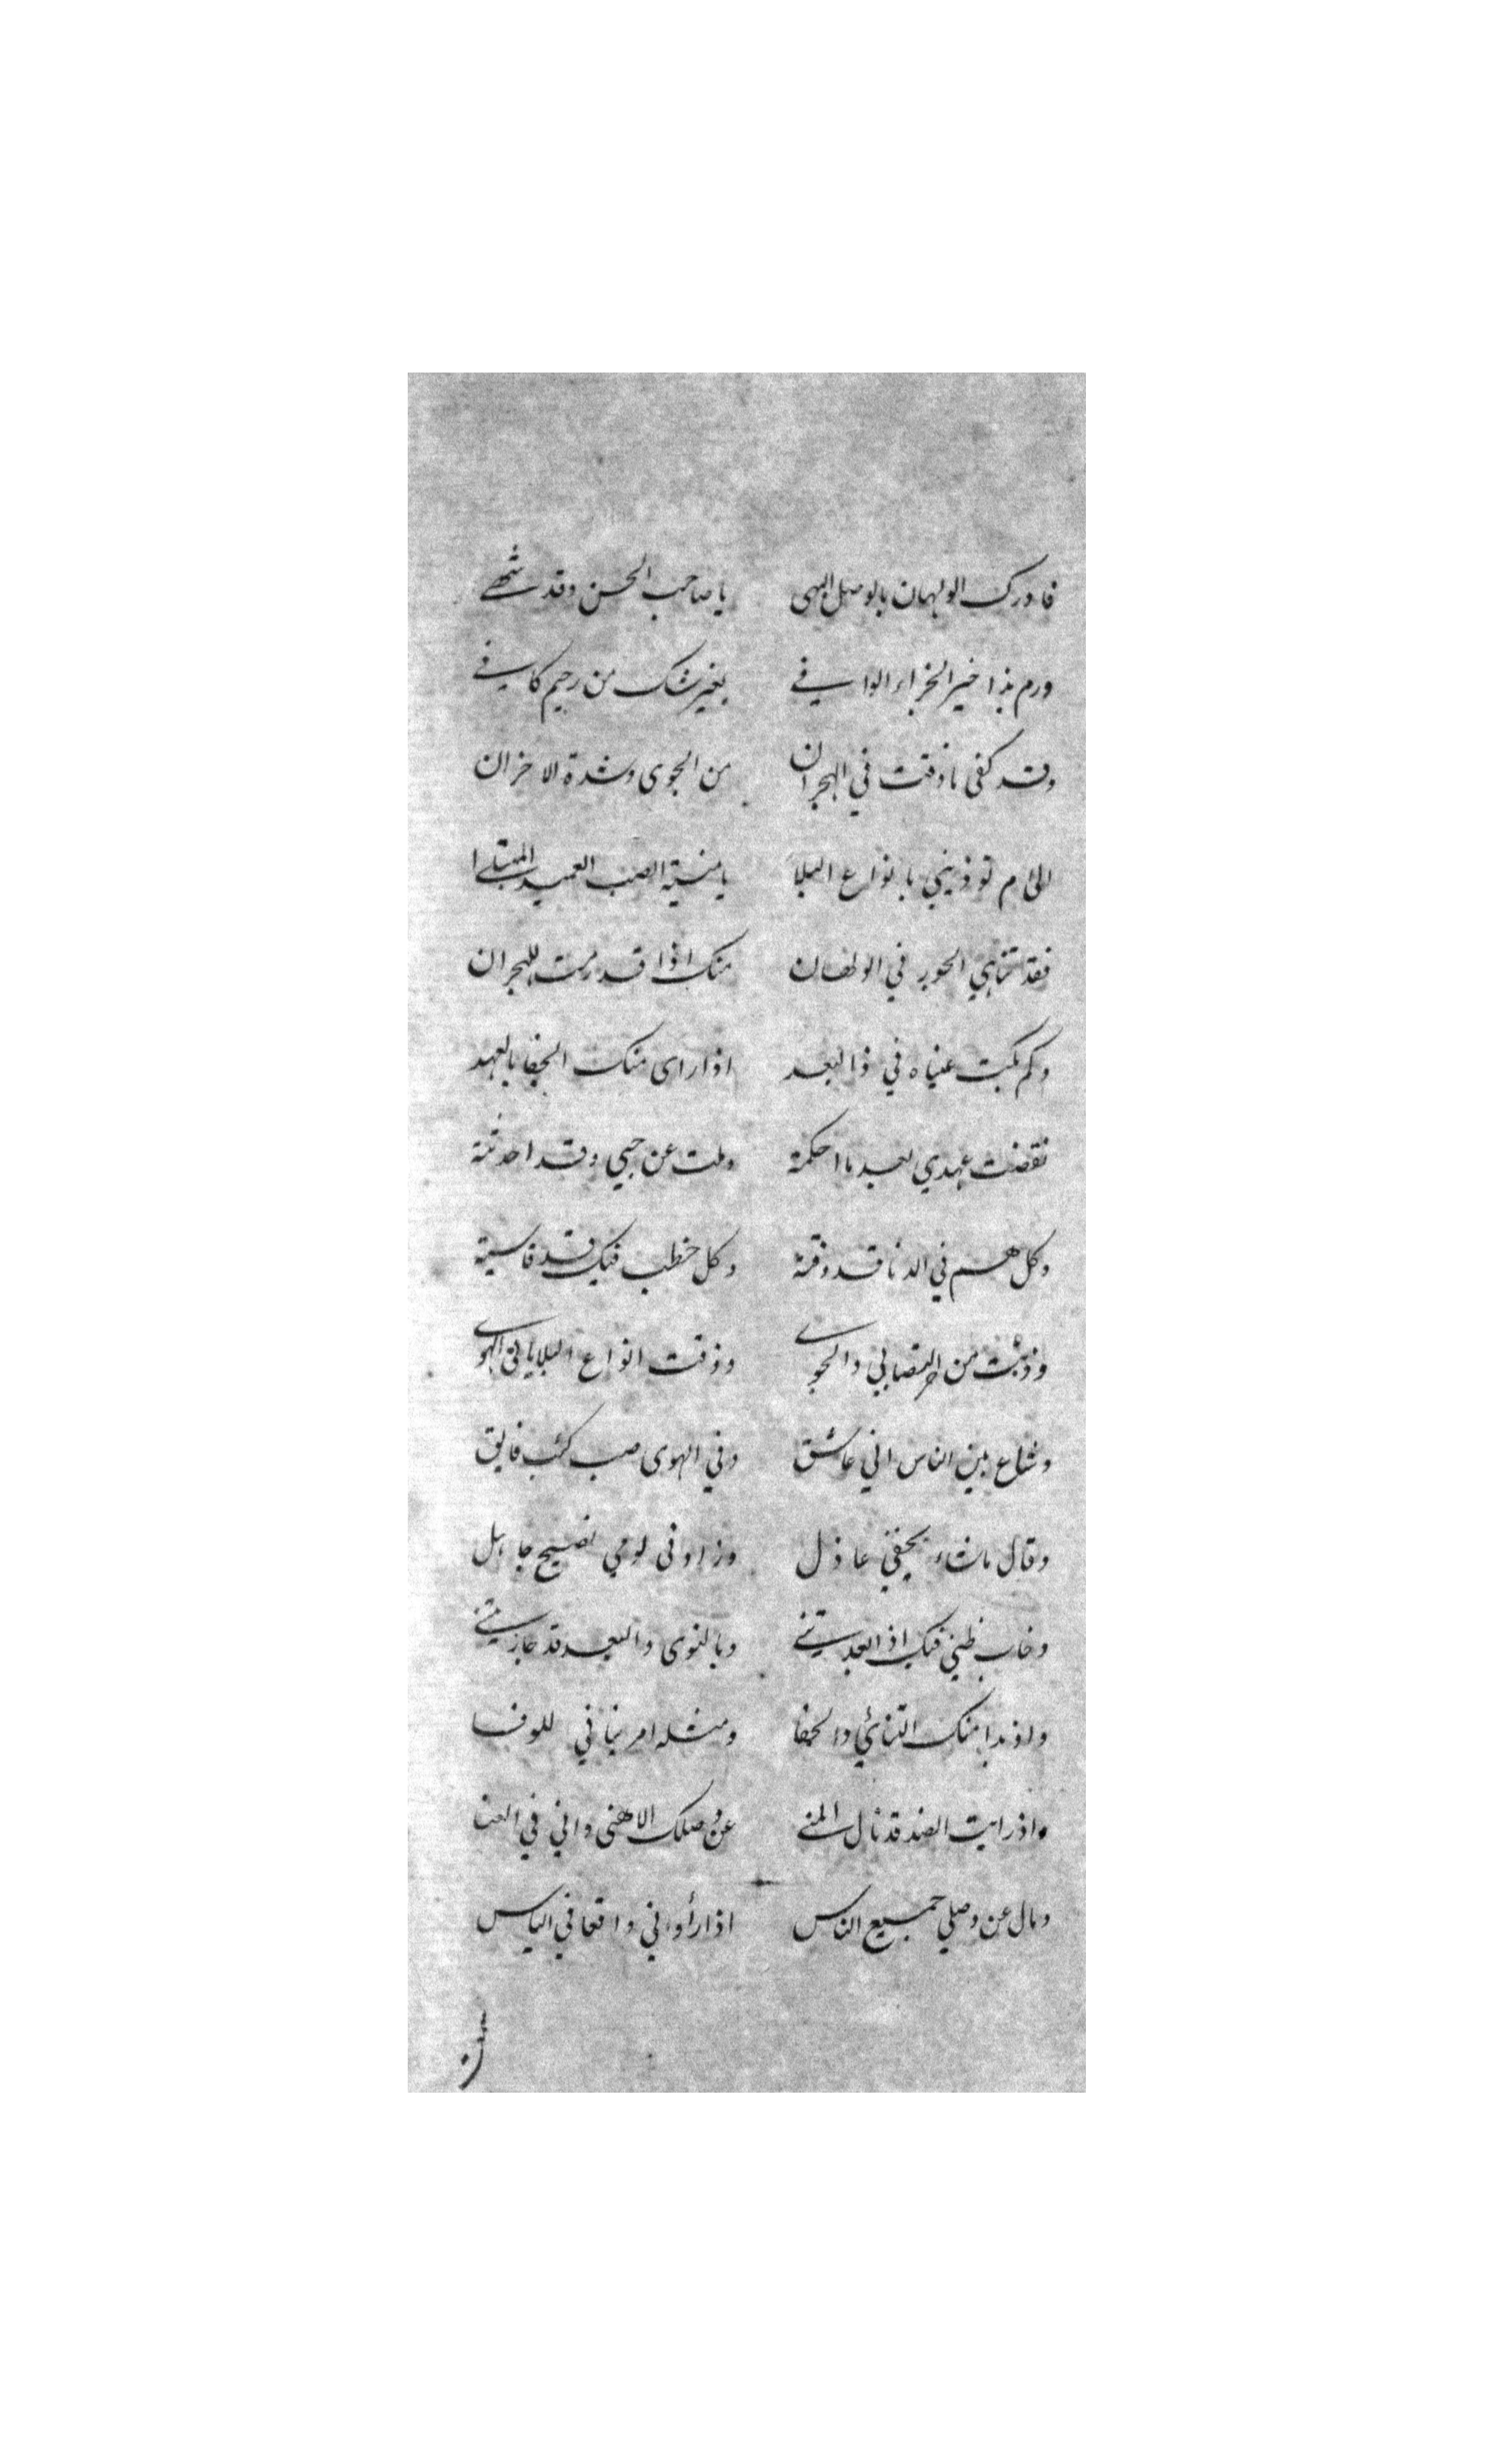 فادرك الولهان بالوصل البهى يا صاحب الحسن وقد
ورم بذا خير الجزاء الوافي بغير شك من رحيم كافي
وقد كفى ما ذقت في الهجران من الجوى وشدة الاحزان
الى م توذيني بانواع البلا يا منية الصب العميد المبتلا
فقد تناهي الجور في الولهان منك اذا قد رمت للهجران
وكم بكت عيناه في ذا البعد اذا راى منك الجفا بالعهد
نقضت عهدي بعد ما احكمته وملت عن حبي وقد احدثته
وكل هم في الدنا قد ذقته وكل خطب فيك قد قاسيته
وذبت من حر التصابي والجوى وذقت انواع البلايا في الهوى
وشاع بين الناس اني عاشق وفي الهوى صب كئب فايق
وقال ما شاء بحقي عاذل وزاد في لومي نصيح جاهل
وخاب ظني فيك اذ ابعدتني وبالنوى والبعد قد جازيتني
واذ بدا منك التنائي والجفا ومثله امر ينافي للوفا
واذ رايت الضد قد نال المنى عن وصلك الاهنى واني في العنا
ومال عن وصلي جميع الناس اذا رأواني واقعا في الياس